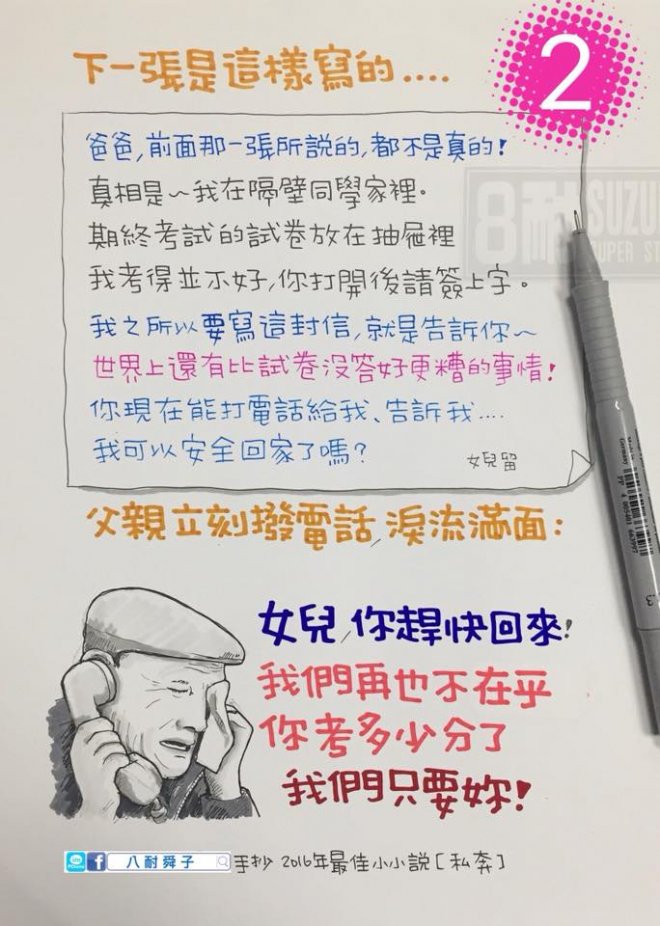 2
下一張是這樣寫的....
爸爸,前面那一張所説的,都不是真的!
真相是~我在隔壁同學家裡。
期終考試的試卷放在抽屜裡
我考得並不好,你打開後請簽上字。
我之所以要寫這封信,就是告訴你~
世界上還有比試卷沒答好更糟的事情!
你現在能打電話給我、告訴我....
我可以安全回家了嗎?
女兒留
父親立刻撥電話,淚流滿面:
女兒,你趕快回來!
我們再也不在乎
你考多少分了
我們只要妳!
八耐舜子
手抄 2016年最佳小小説[私奔]
8耐 SUZU
SUPER ST
Germany